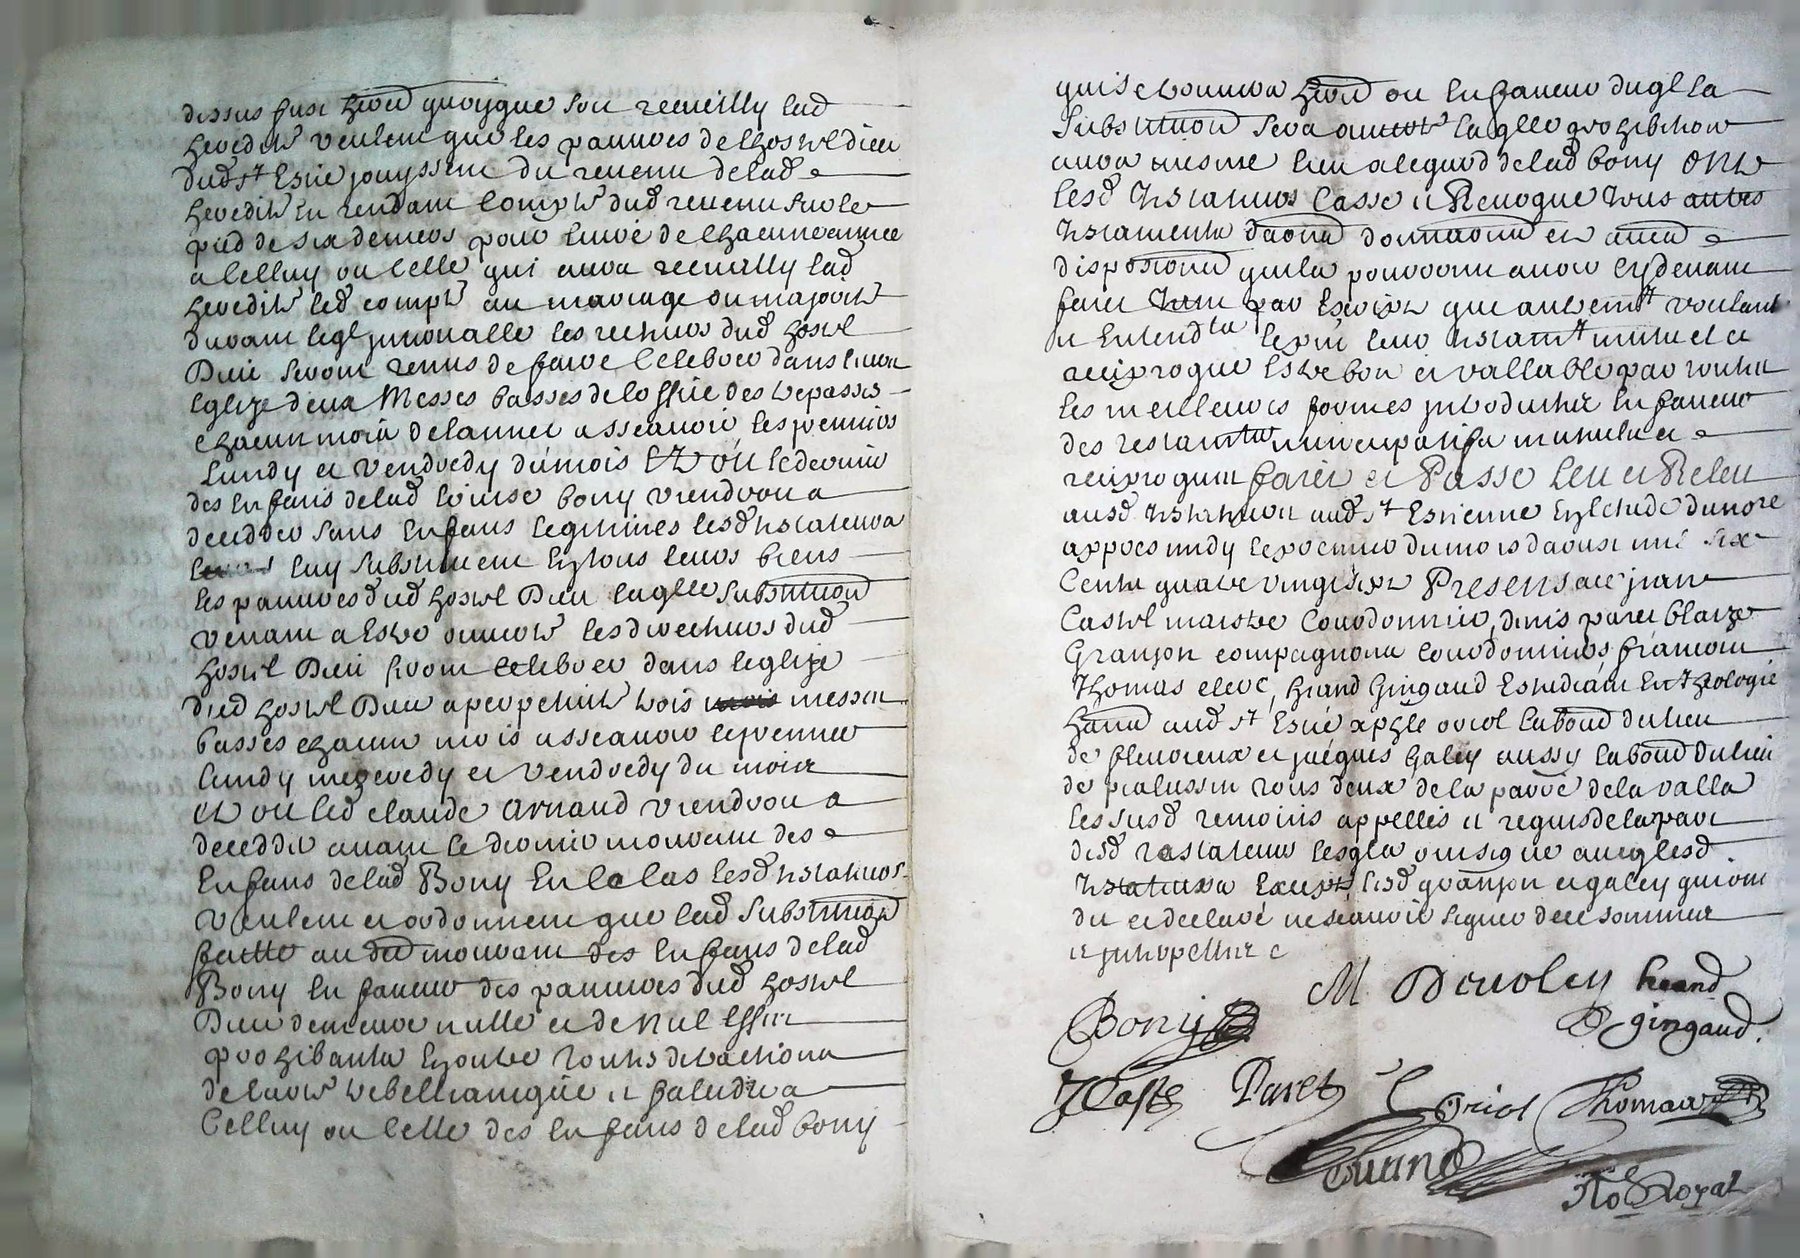 dessus fust herou quoyque soit recueilly lad
heredite veulent que les pauvres de lhostel dieu
dud st Estie jouyssent du revenu de lad
heredite en rendant compte dud revenu sur le
pied de six deniers pour livre de chacune annee
a celluy ou celle qui aura recueilly lad
heredite led compte au mariage ou majorite
durant leql intervalle les recteurs dud hostel
Dieu seront tenus de faire celebrer dans leur
Eglize deux Messes basses de loffice des trepasses
chacun mois de lannee a sscavoir les premiers
Lundy et vendredy du mois Et ou le dernier
des enfans de lad Louise bony viendroit a
decedder sans enfans legitimes lesd testateurs
luy substituent en tous leurs biens
les pauvres dud hostel Dieu laqlle substitution
venant a estre ouverte les directeurs dud
hostel Dieu feront celebrer dans leglize
dud hostel Dieu a perpetuite trois messes
basses chacun mois a sscavoir le premier
lundy mezcredy et vendredy du mois
et ou led claude arnaud viendroit a
decedder avant le dernier mourant des
Enfans de lad Bony En ce cas lesd testateurs
veulent et ordonnent que lad substitution
faitte au der mourant des enfans de lad
Bony en faveur des pauvres dud hostel
Dieu demeure nulle et de nul effect
prohibants en outre toutes detractions
de laditte trebellianique et falcidie a
Celluy ou Celle des enfans de lad bony
qui se trouvera herou ou en faveur duql la
substitution sera ouverte laqlle prohibition
aura mesme lieu a legard de lad bony Ont
lesd testateurs Casse et Revoque tous autres
testaments donations et autres
dispositions quils pourroient avoir cy devant
faict tant par escript que autremt voulant
et entendts le pnt leur testamt mutuel et
reciproque estre bon et vallable par toutes
les meilleures formes introduittes en faveur
des testamts nuncupatifs mutuels et
reciproques faict et Passe leu et Releu
ausd testateurs aud st Estienne estude du nore
appres midy le premier du mois daoust mil six
Cents quatre vingts sept Presens a ce jean
Castel maistre Cordonnier, denis paret blaize
Granjon compagnons cordonniers francois
Thomas clerc, heand Gingaud Estudiant En theologie
hants aud st Estie xphle oriol labour du lieu
de flevrieux et jacques Galey aussy labour du lieu
de palussin tous deux de la parre de la valla
les susd temoins appelles et requis de la part
desd testateurs lesqls ont signe avec lesd
testateurs Excepte lesd granjon et galey qui ont
dit et declare ne scavoir signer de ce sommes
et interpelles
M Devoley heand
Bony gingaud
J Caste Paret C Oriol Thomas
Durand
No Royal